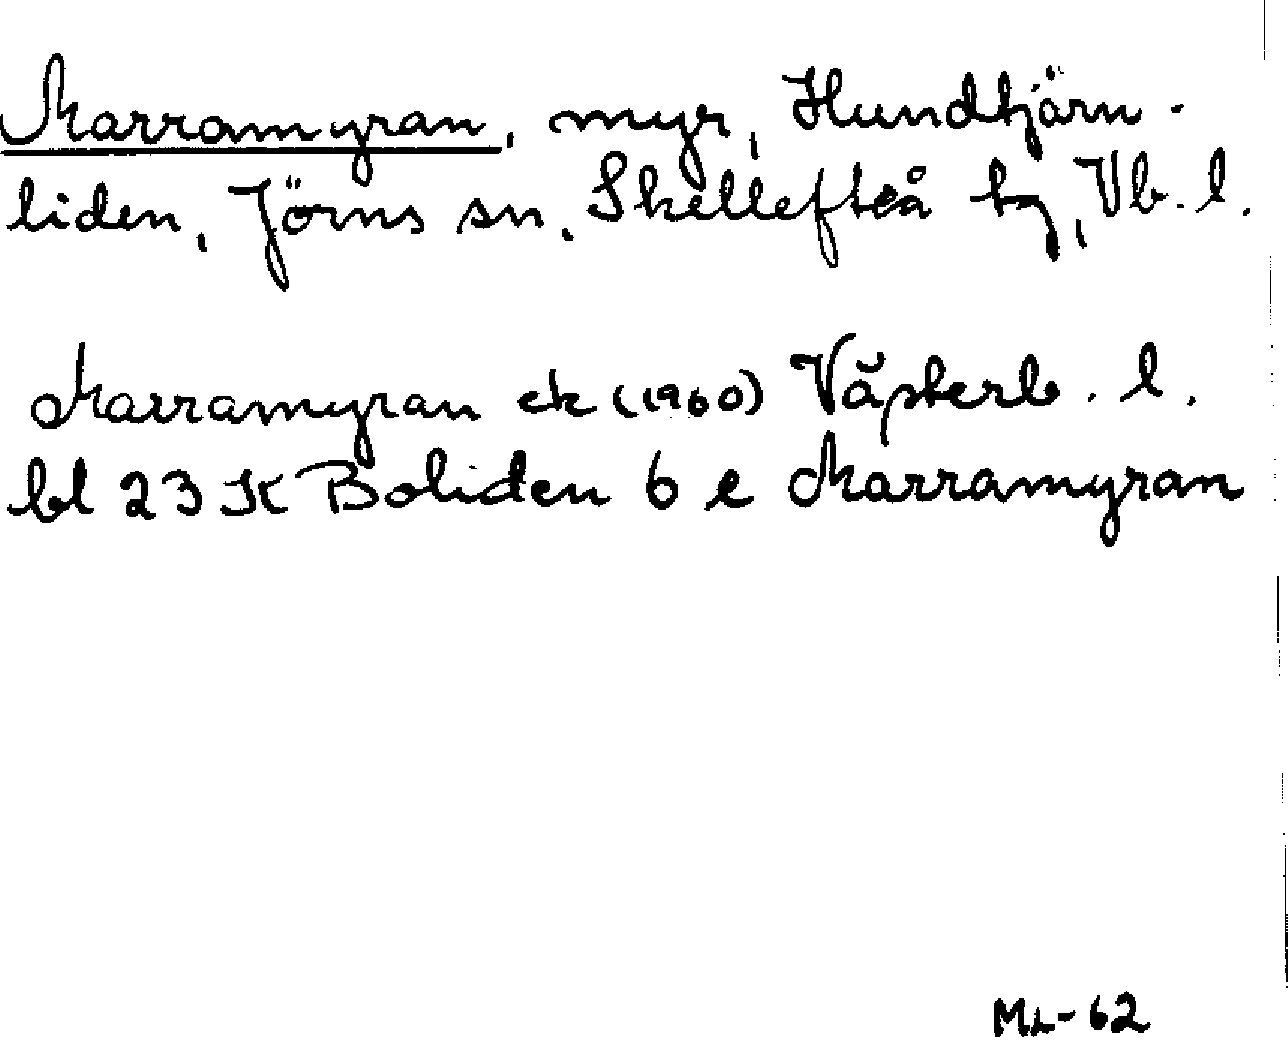 Marramyran, myr, Hundtjärn-
liden, Jörns sn, Skellefteå tg, Vb. l.
Marramyran ek (1960) Västerb. l.
bl 23 K Boliden 6 e Marramyran
ML-62